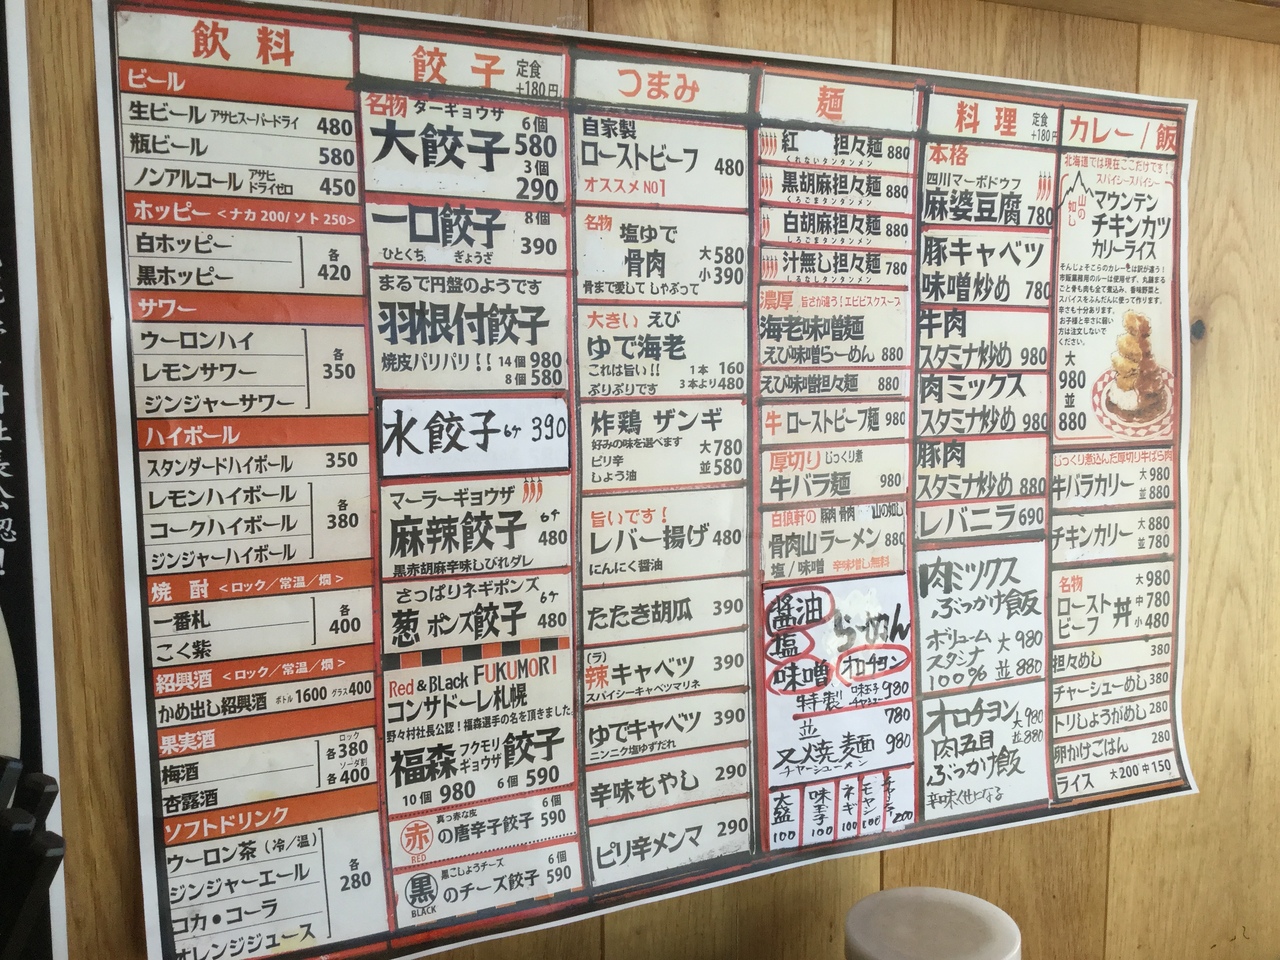 飲料
ビール
生ビール アサヒスーパードライ 480
瓶ビール 580
ノンアルコール アサヒドライゼロ 450
ホッピー <ナカ200/ソト250>
白ホッピー
黒ホッピー
各420
サワー
ウーロンハイ
レモンサワー
ジンジャーサワー
各350
ハイボール
スタンダードハイボール 350
レモンハイボール
コークハイボール
ジンジャーハイボール
各380
焼酎 <ロック/常温/燗>
一番札
こく紫
各400
紹興酒 <ロック/常温/燗>
かめ出し紹興酒 ボトル1600 グラス400
果実酒
梅酒
杏露酒
ロック 各380
ソーダ割 各400
ソフトドリンク
ウーロン茶(冷/温)
ジンジャーエール
コカ・コーラ
オレンジジュース
各280
餃子 定食+180円
名物 ターギョウザ
大餃子 6個 580
3個 290
一口餃子 8個 390
ひとくち ぎょうざ
まるで円盤のようです
羽根付餃子
焼皮パリパリ!! 14個 980
8個 580
水餃子 6ケ 390
マーラーギョウザ
麻辣餃子 6ケ 480
黒赤胡麻辛味しびれダレ
さっぱりネギポンズ
葱ポンズ餃子 6ケ 480
Red & Black FUKUMORI
コンサドーレ札幌
野々村社長公認!福森選手の名を頂きました
福森餃子 フクモリギョウザ
10個 980 6個 590
真っ赤な皮 6個
赤 RED の唐辛子餃子 590
黒こしょうチーズ 6個
黒 BLACK のチーズ餃子 590
つまみ
自家製
ローストビーフ 480
オススメNO1
名物 塩ゆで骨肉 大580
小390
骨まで愛して しゃぶって
大きい えび
ゆで海老
これは旨い!! 1本 160
ぷりぷりです 3本より480
炸鶏 ザンギ
好みの味を選べます 大780
ピリ辛 並580
しょう油
旨いです!
レバー揚げ 480
にんにく醤油
たたき胡瓜 390
(ラ)
辣キャベツ 390
スパイシーキャベツマリネ
ゆでキャベツ 390
ニンニク塩ゆずだれ
辛味もやし 290
ピリ辛メンマ 290
麺
紅 担々麺 880
くれないタンタンメン
黒胡麻担々麺 880
くろごまタンタンメン
白胡麻担々麺 880
しろごまタンタンメン
汁無し担々麺 780
しるなしタンタンメン
濃厚 旨さが違う!エビビスクスープ
海老味噌麺
えび味噌らーめん 880
えび味噌担々麺 880
牛 ローストビーフ麺 980
厚切り じっくり煮
牛バラ麺 980
白狼軒の 豚肉 骨肉 山の如し
骨肉山ラーメン 880
塩/味噌 辛味増し無料
醤油
塩
味噌
らーめん
オロチョン
特製 味玉子 チャシュー 980
並 780
叉焼麺 980
チャーシューメン
大盛 100
味玉子 100
ネギ 100
モヤシ 100
チャーシュー 200
料理 定食+180円
本格
四川マーボドウフ
麻婆豆腐 780
豚キャベツ
味噌炒め 780
牛肉
スタミナ炒め 980
肉ミックス
スタミナ炒め 980
豚肉
スタミナ炒め 880
レバニラ 690
肉ミックス
ぶっかけ飯
ボリューム 大980
スタミナ
100% 並880
オロチョン 大980
肉五目 並880
ぶっかけ飯
辛味くせになる
カレー/飯
北海道では現在ここだけです!
スパイシースパイシー
山の如し
マウンテン
チキンカツ
カリーライス
そんじょそこらのカレーとは訳が違う!
市販業務用のルーは使用せず、丸鶏まる
ごと骨も肉も全て煮込み、香味野菜と
スパイスをふんだんに使って作ります。
辛さも十分あります。
お子様と辛さに弱い
方は注文しないで
ください。
大 980
並 880
じっくり煮込んだ厚切り牛ばら肉
牛バラカリー 大980
並880
チキンカリー 大880
並780
名物 ローストビーフ丼 大980
中780
小480
担々めし 380
チャーシューめし 380
トリしょうがめし 280
卵かけごはん 280
ライス 大200 中150